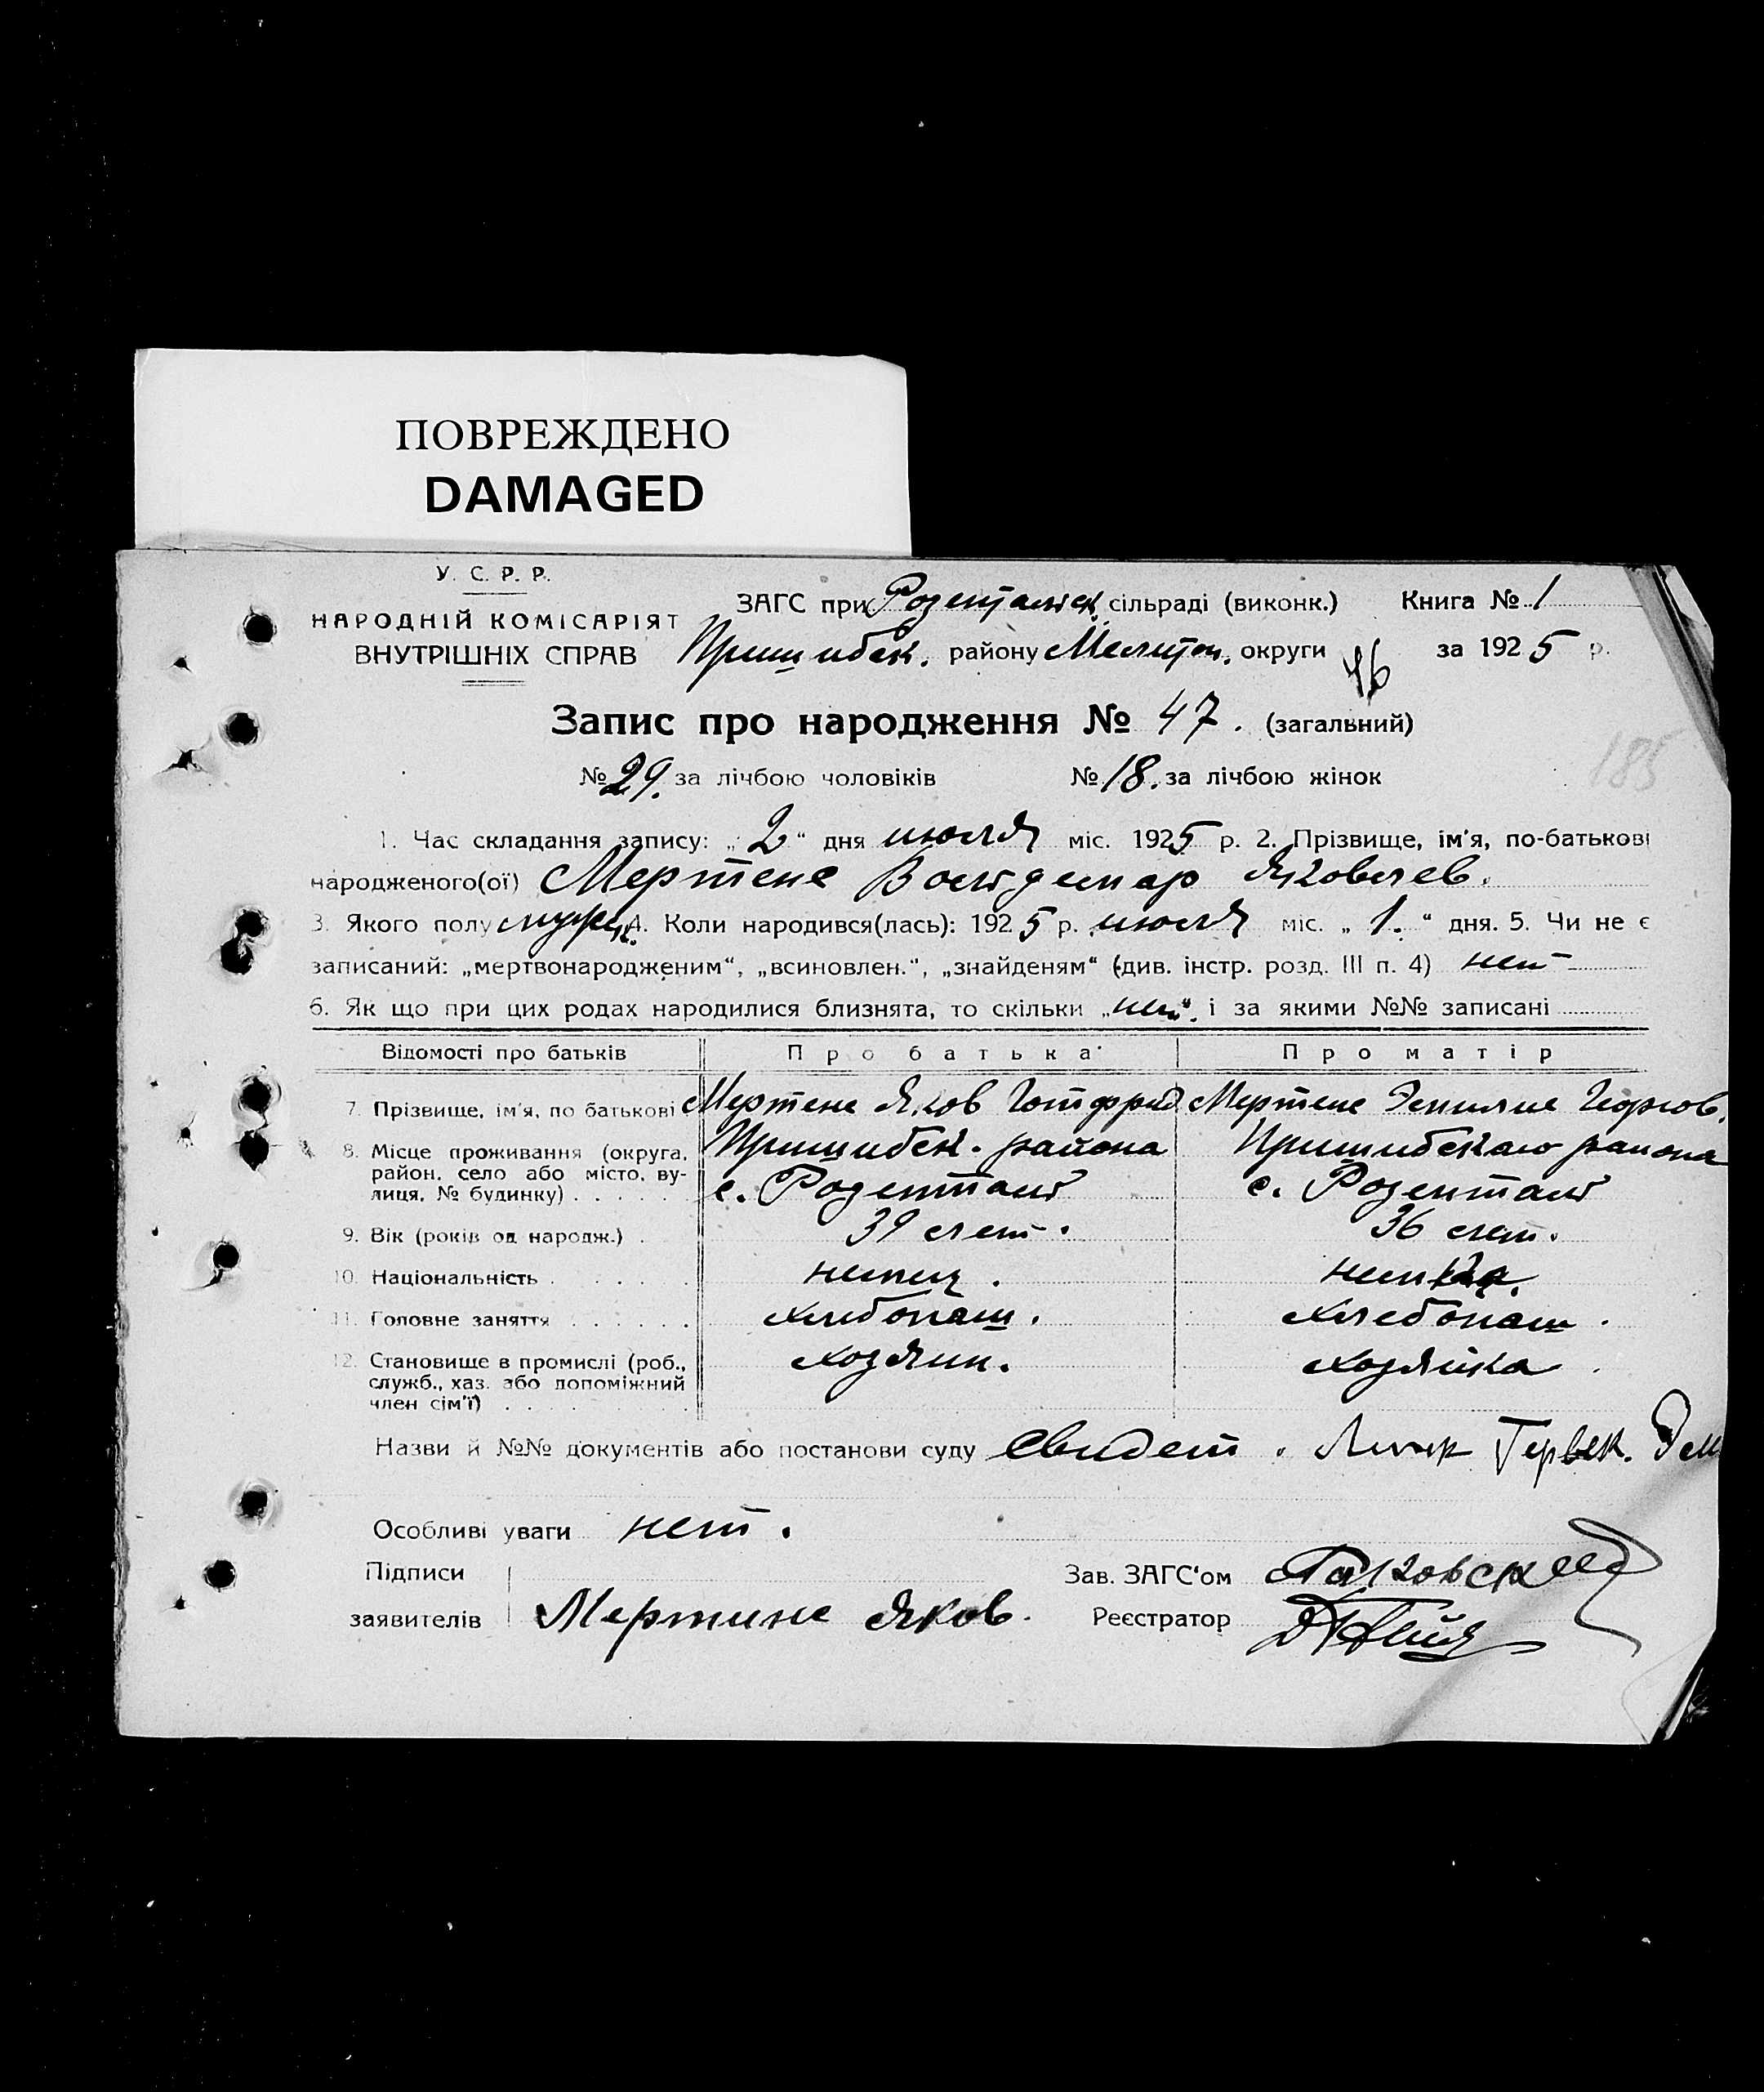 ПОВРЕЖДЕНО
DAMAGED
У. С. Р. Р.
НАРОДНІЙ КОМІСАРІЯТ
ВНУТРІШНІХ СПРАВ
ЗАГС при Розентальск. сільраді (виконк.) Книга № 1
Пришибск. району Мелитоп. округи 46 за 1925 р.
Запис про народження № 47. (загальний)
185
№ 29. за лічбою чоловіків № 18. за лічбою жінок
1. Час складання запису: „2“ дня июля міс. 1925 р. 2. Прізвище, ім'я, по-батькові
народженого(ої) Мертенс Вольдемар Яковлев.
3. Якого полу мужск. 4. Коли народився(лась): 1925 р. июля міс. „1.“ дня. 5. Чи не є
записаний: „мертвонародженим“, „всиновлен.“, „знайденям“ (див. інстр. розд. III п. 4) нет
6. Як що при цих родах народилися близнята, то скільки „нет“. і за якими №№ записані
Відомості про батьків Про батька Про матір
7. Прізвище, ім'я, по батькові Мертенс Яков Готфрид Мертенс Эмилие Георгов.
8. Місце проживання (округа, район, село або місто, ву-лиця, № будинку) Пришибск. района Пришибскаго района
с. Розенталь с. Розенталь
9. Вік (років од народж.) 39 лет. 36 лет.
10. Національність немец. немка.
11. Головне заняття хлебопаш. хлебопаш.
12. Становище в промислі (роб., служб., хаз. або допоміжний член сім'ї) хозяин. хозяйка
Назви й №№ документів або постанови суду Свидет.
Особливі уваги нет.
Підписи Зав. ЗАГС'ом
заявителів Мертинс Яков. Реєстратор